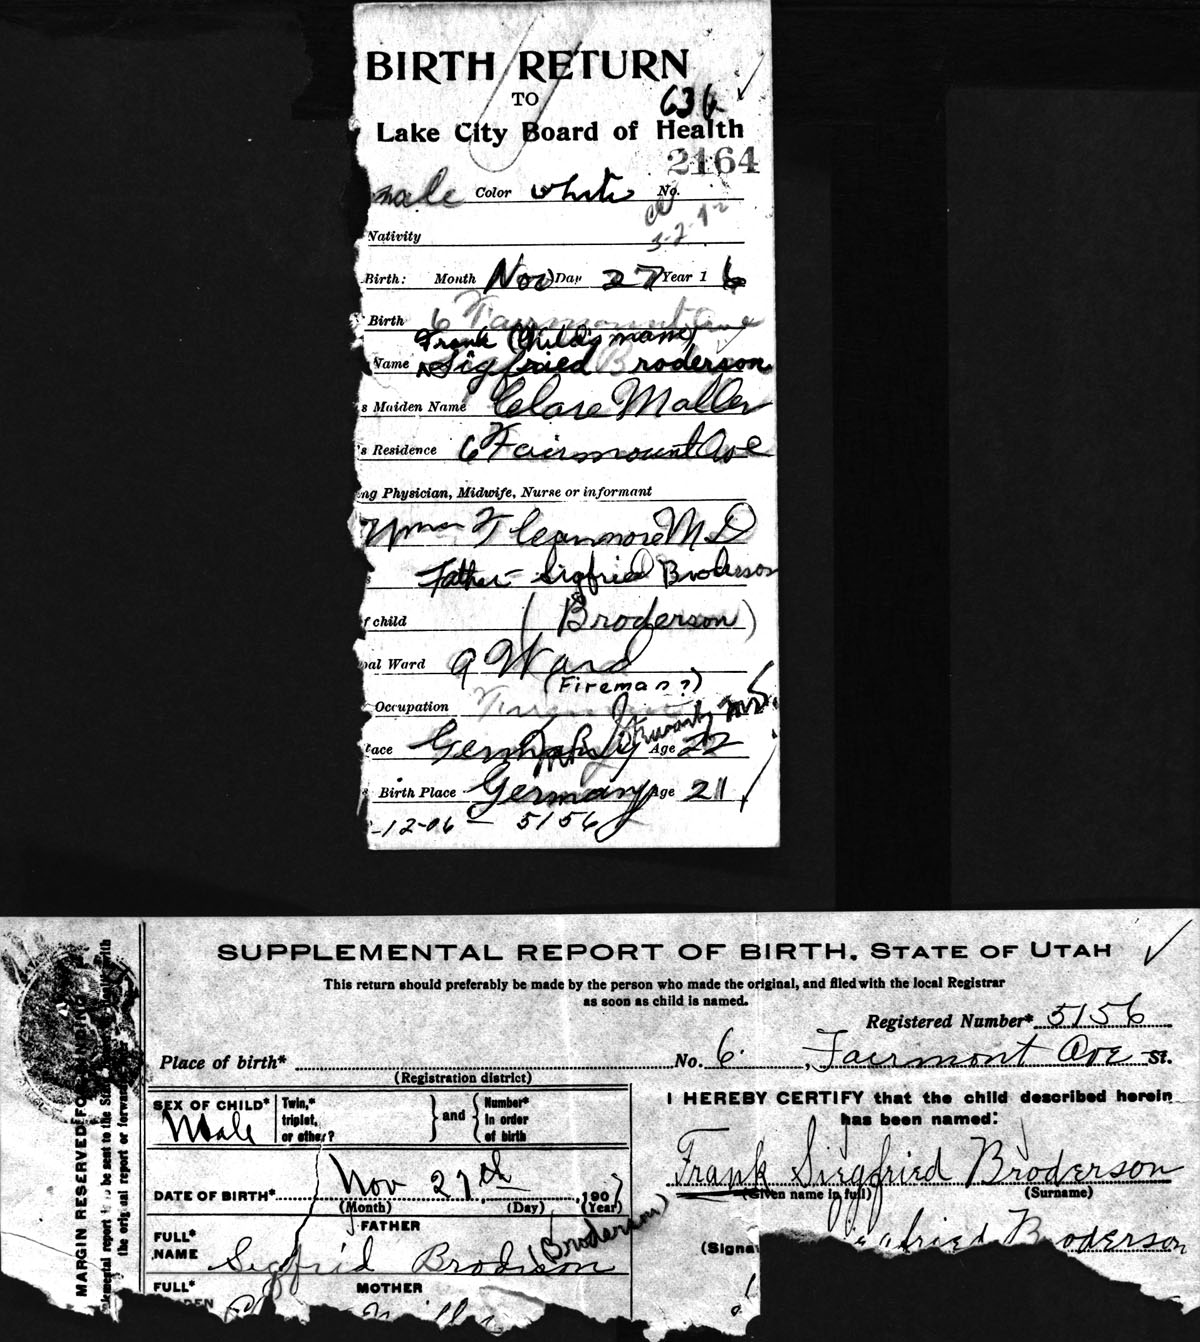 BIRTH RETURN
TO
636
Lake City Board of Health
2164
male Color white No.
3-2-42
Nativity
Birth: Month Nov Day 27 Year 1 6
Birth 6 Fairmount Ave
Frank (Child's name)
Name Sigfried Broderson
s Maiden Name Clare Maller
's Residence 6 Fairmount Ave
ng Physician, Midwife, Nurse or informant
Wm F M.D
Father- Sigfried Broderson
f child (Broderson)
al Ward 9 Ward
(Fireman?)
Occupation
lace Germany Age 22
Birth Place Germany Age 21
-12-06 - 5156
SUPPLEMENTAL REPORT OF BIRTH. STATE OF UTAH
This return should preferably be made by the person who made the original, and filed with the local Registrar
as soon as child is named.
Registered Number* 5156
Place of birth* No. 6. , Fairmont Ave St.
(Registration district)
SEX OF CHILD* Male
Twin,* triplet, or other? } and { Number* in order of birth
I HEREBY CERTIFY that the child described herein
has been named:
Frank Siegfried Broderson
(Given name in full) (Surname)
DATE OF BIRTH* Nov 27th, 190
(Month) (Day) (Year)
FATHER
FULL* NAME Sigfrid Brodison (Broderson)
(Signa Broderson
FULL* MOTHER
MARGIN RESERVED FOR BINDING
lemental report to be sent to the State with
the original report or forwarded